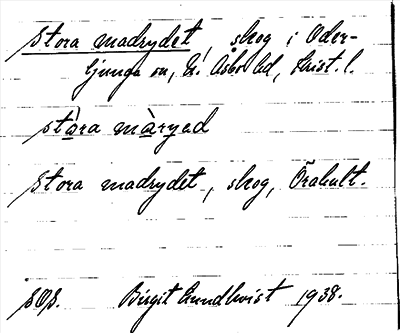 Stora madrydet, skog i Öder-
ljunga sn, Ö. Asbo hd, Krist. l.
ståra màryed
Stora madrydet, skog, Örahult.
SOS. Birgit Lundkvist 1938.